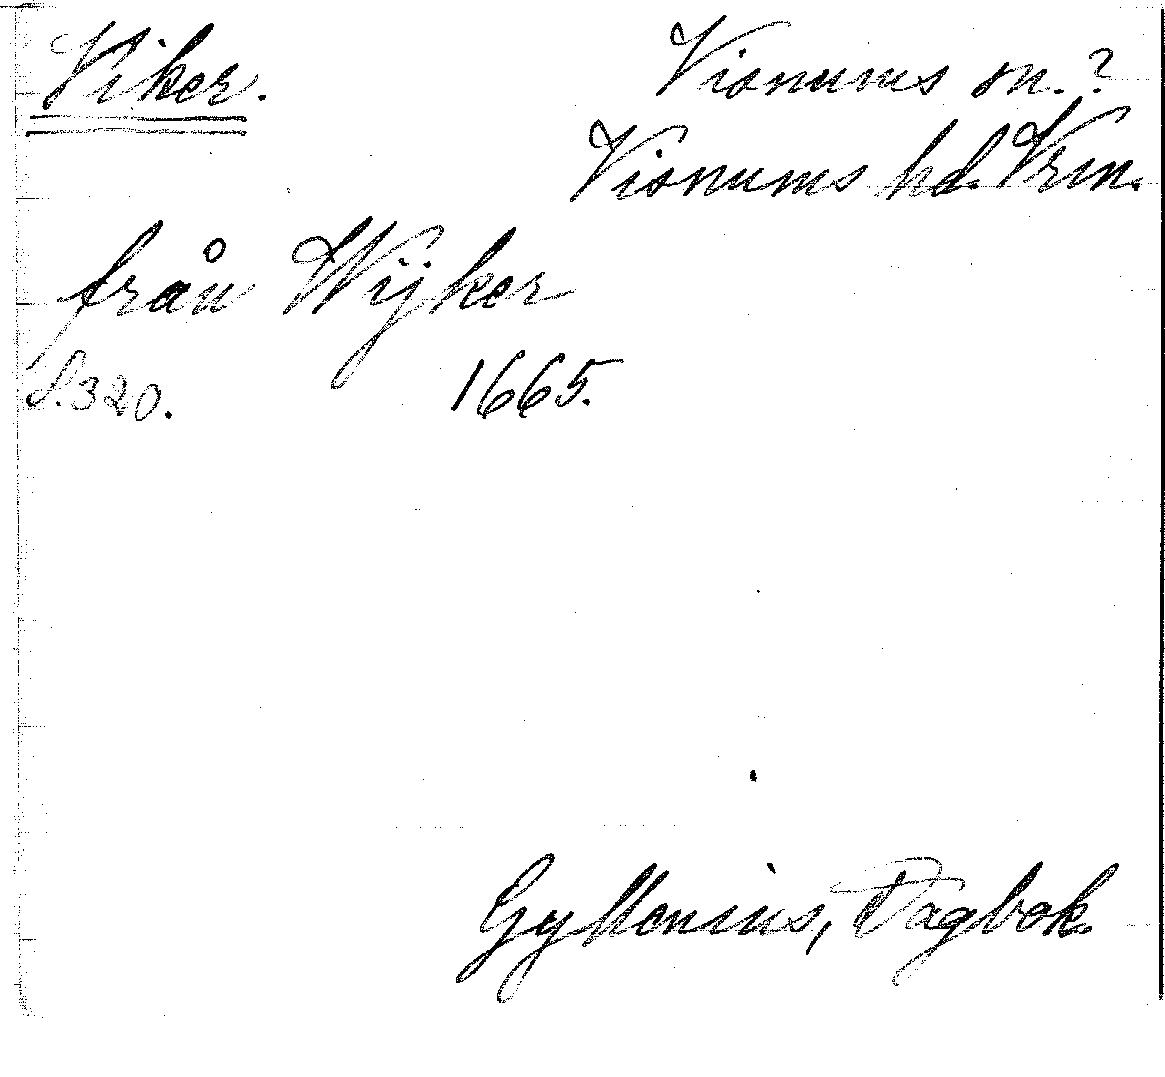 Viker.
Visnums sn.?
Visnums hd. Vrm.
från Wijker
S. 320. 1665.
Gyllenius, Dagbok.